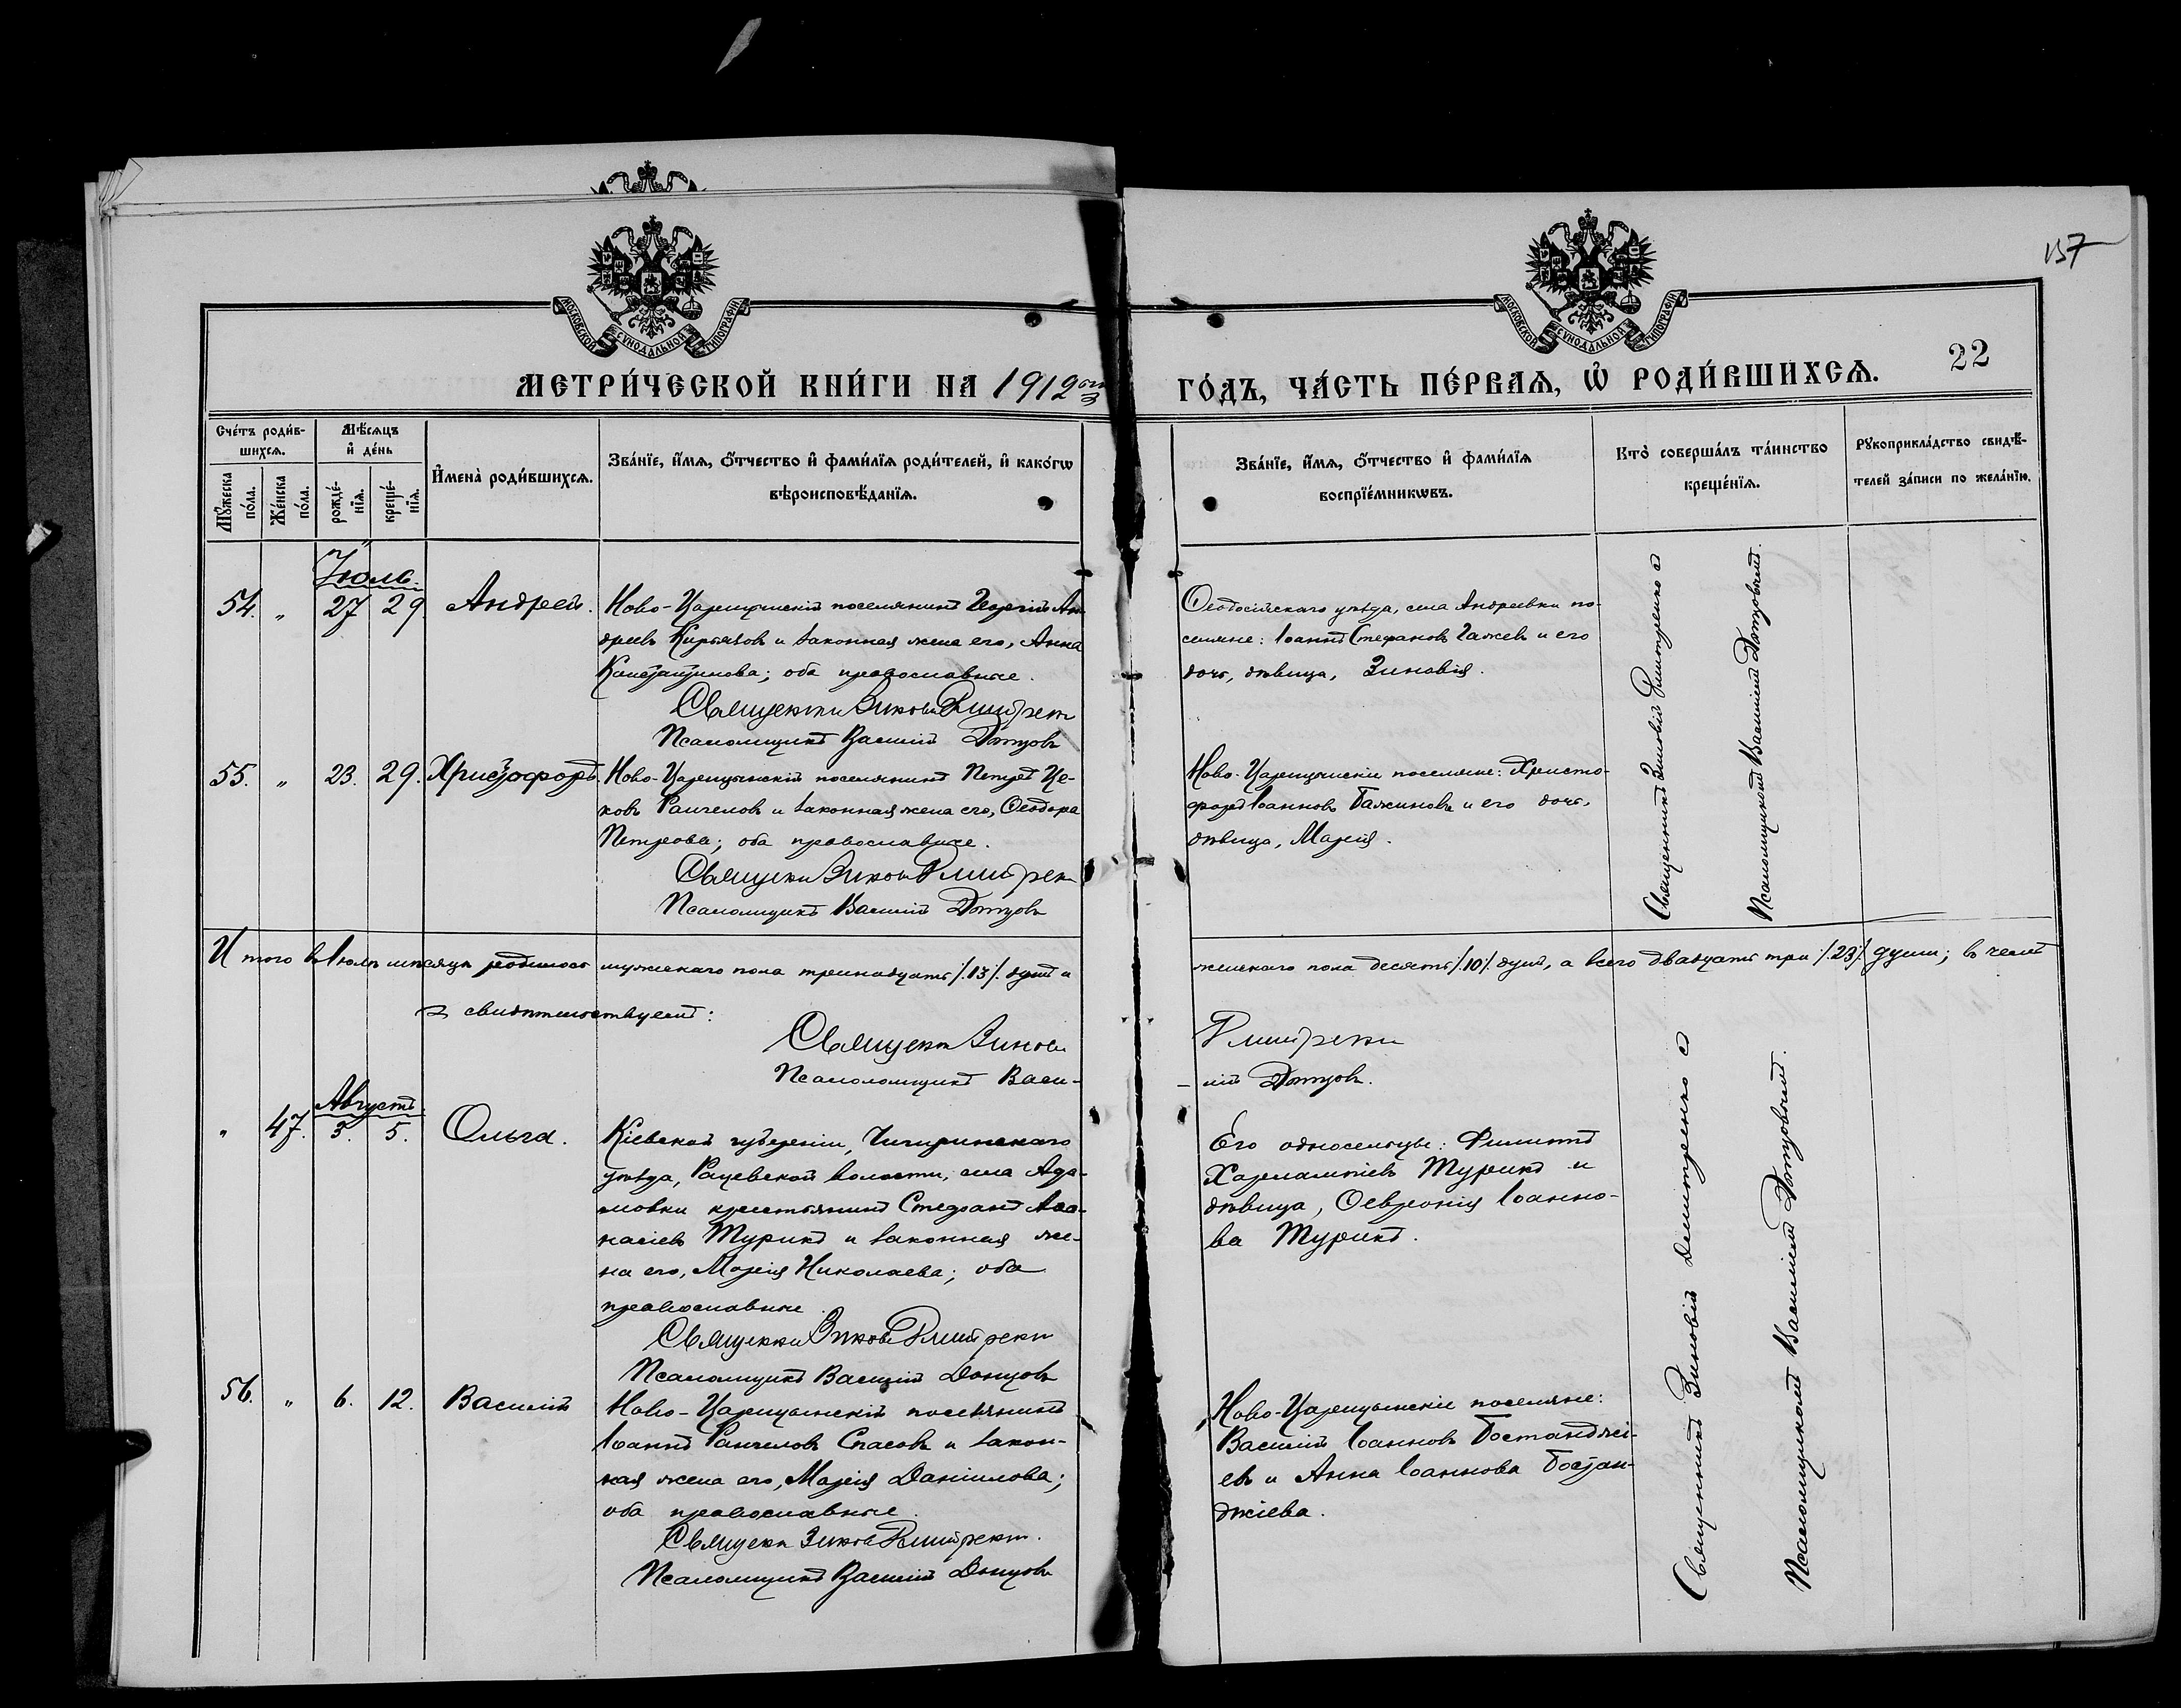 157
МОСКОВСКОЙ СУНОДАЛЬНОЙ ТИПОГРАФІИ
МОСКОВСКОЙ СУНОДАЛЬНОЙ ТИПОГРАФІИ
22
МЕТРИ́ЧЕСКОЙ КНИ́ГИ НА 1912ый ГО́ДЪ, ЧА́СТЬ ПЕ́РВАѦ, Ѡ҆ РОДИ́ВШИХСѦ.
Сче́тъ роди́в-
шихсѧ.
Мѣ́сѧцъ
и҆ де́нь
Мꙋ́жеска
по́ла.
Же́нска
по́ла.
рожде́-
нїѧ.
креще́-
нїѧ.
И҆мена̀ роди́вшихсѧ.
Зва́нїе, и҆́мѧ, ѻ҆́тчество и҆ фами́лїѧ роди́телей, и҆ како́гѡ
вѣроисповѣ́данїѧ.
Зва́нїе, и҆́мѧ, ѻ҆́тчество и҆ фами́лїѧ
воспрїе́мникѡвъ.
Кто̀ соверша́лъ та́инство
креще́нїѧ.
Рꙋкоприкла́дство свидѣ́-
телей за́писи по жела́нїю.
Іюль.
54. „ 27 29 Андрей.
Ново-Царицынскій поселянинъ Георгій Ан-
дреевъ Кирьязовъ и законная жена его, Анна
Константинова; оба православные.
Священник Зиновій Дмитренко
Псаломщикъ Василій Донцовъ
Ѳеодосійскаго уѣзда, села Андреевки по-
селяне: Іоаннъ Стефановъ Гажевъ и его
дочь, дѣвица, Зиновія.
Священникъ Зиновій Дмитренко с
Псаломщикомъ Василіемъ Донцовымъ.
55. „ 23. 29. Христофоръ.
Ново-Царицынскій поселянинъ Петръ Це-
ковъ Ранчеловъ и законная жена его, Ѳеодора
Петрова; оба православные.
Священник Зиновій Дмитренко
Псаломщикъ Василій Донцовъ
Ново-Царицынскіе поселяне: Христо-
форъ Іоанновъ Бажиновъ и его дочь,
дѣвица, Марія.
Итого въ Іюлѣ мѣсяцѣ родилось мужескаго пола тринадцать /.13/. душъ и женскаго пола десять /.10/. душъ, а всего двадцать три /.23/. души; въ чемъ
и свидѣтельствуемъ:
Священник Зиновій Дмитренко
Псаломщикъ Васи-лій Донцовъ.
Августъ.
„ 47. 3. 5. Ольга.
Кіевской губерніи, Чигиринскаго
уѣзда, Рацевской волости, села Ада-
мовки крестьянинъ Стефанъ Аѳа-
насіевъ Турикъ и законная же-
на его, Марія Николаева; оба
православные.
Священник Зиновій Дмитренко
Псаломщикъ Василій Донцовъ
Его односельцы: Филиппъ
Харлампіевъ Турикъ и
дѣвица, Ѳевронія Іоанно-
ва Турикъ.
Священникъ Зиновій Димитренко с
Псаломщикомъ Василіемъ Донцовымъ.
56. „ 6. 12. Василій
Ново-Царицынскій поселянинъ
Іоаннъ Ранчеловъ Спасовъ и закон-
ная жена его, Марія Даніилова;
оба православные.
Священник Зиновій Дмитренко.
Псаломщикъ Василій Донцовъ
Ново-Царицынскіе поселяне:
Василій Іоанновъ Бостанджі-
евъ и Анна Іоаннова Бостан-
джіева.